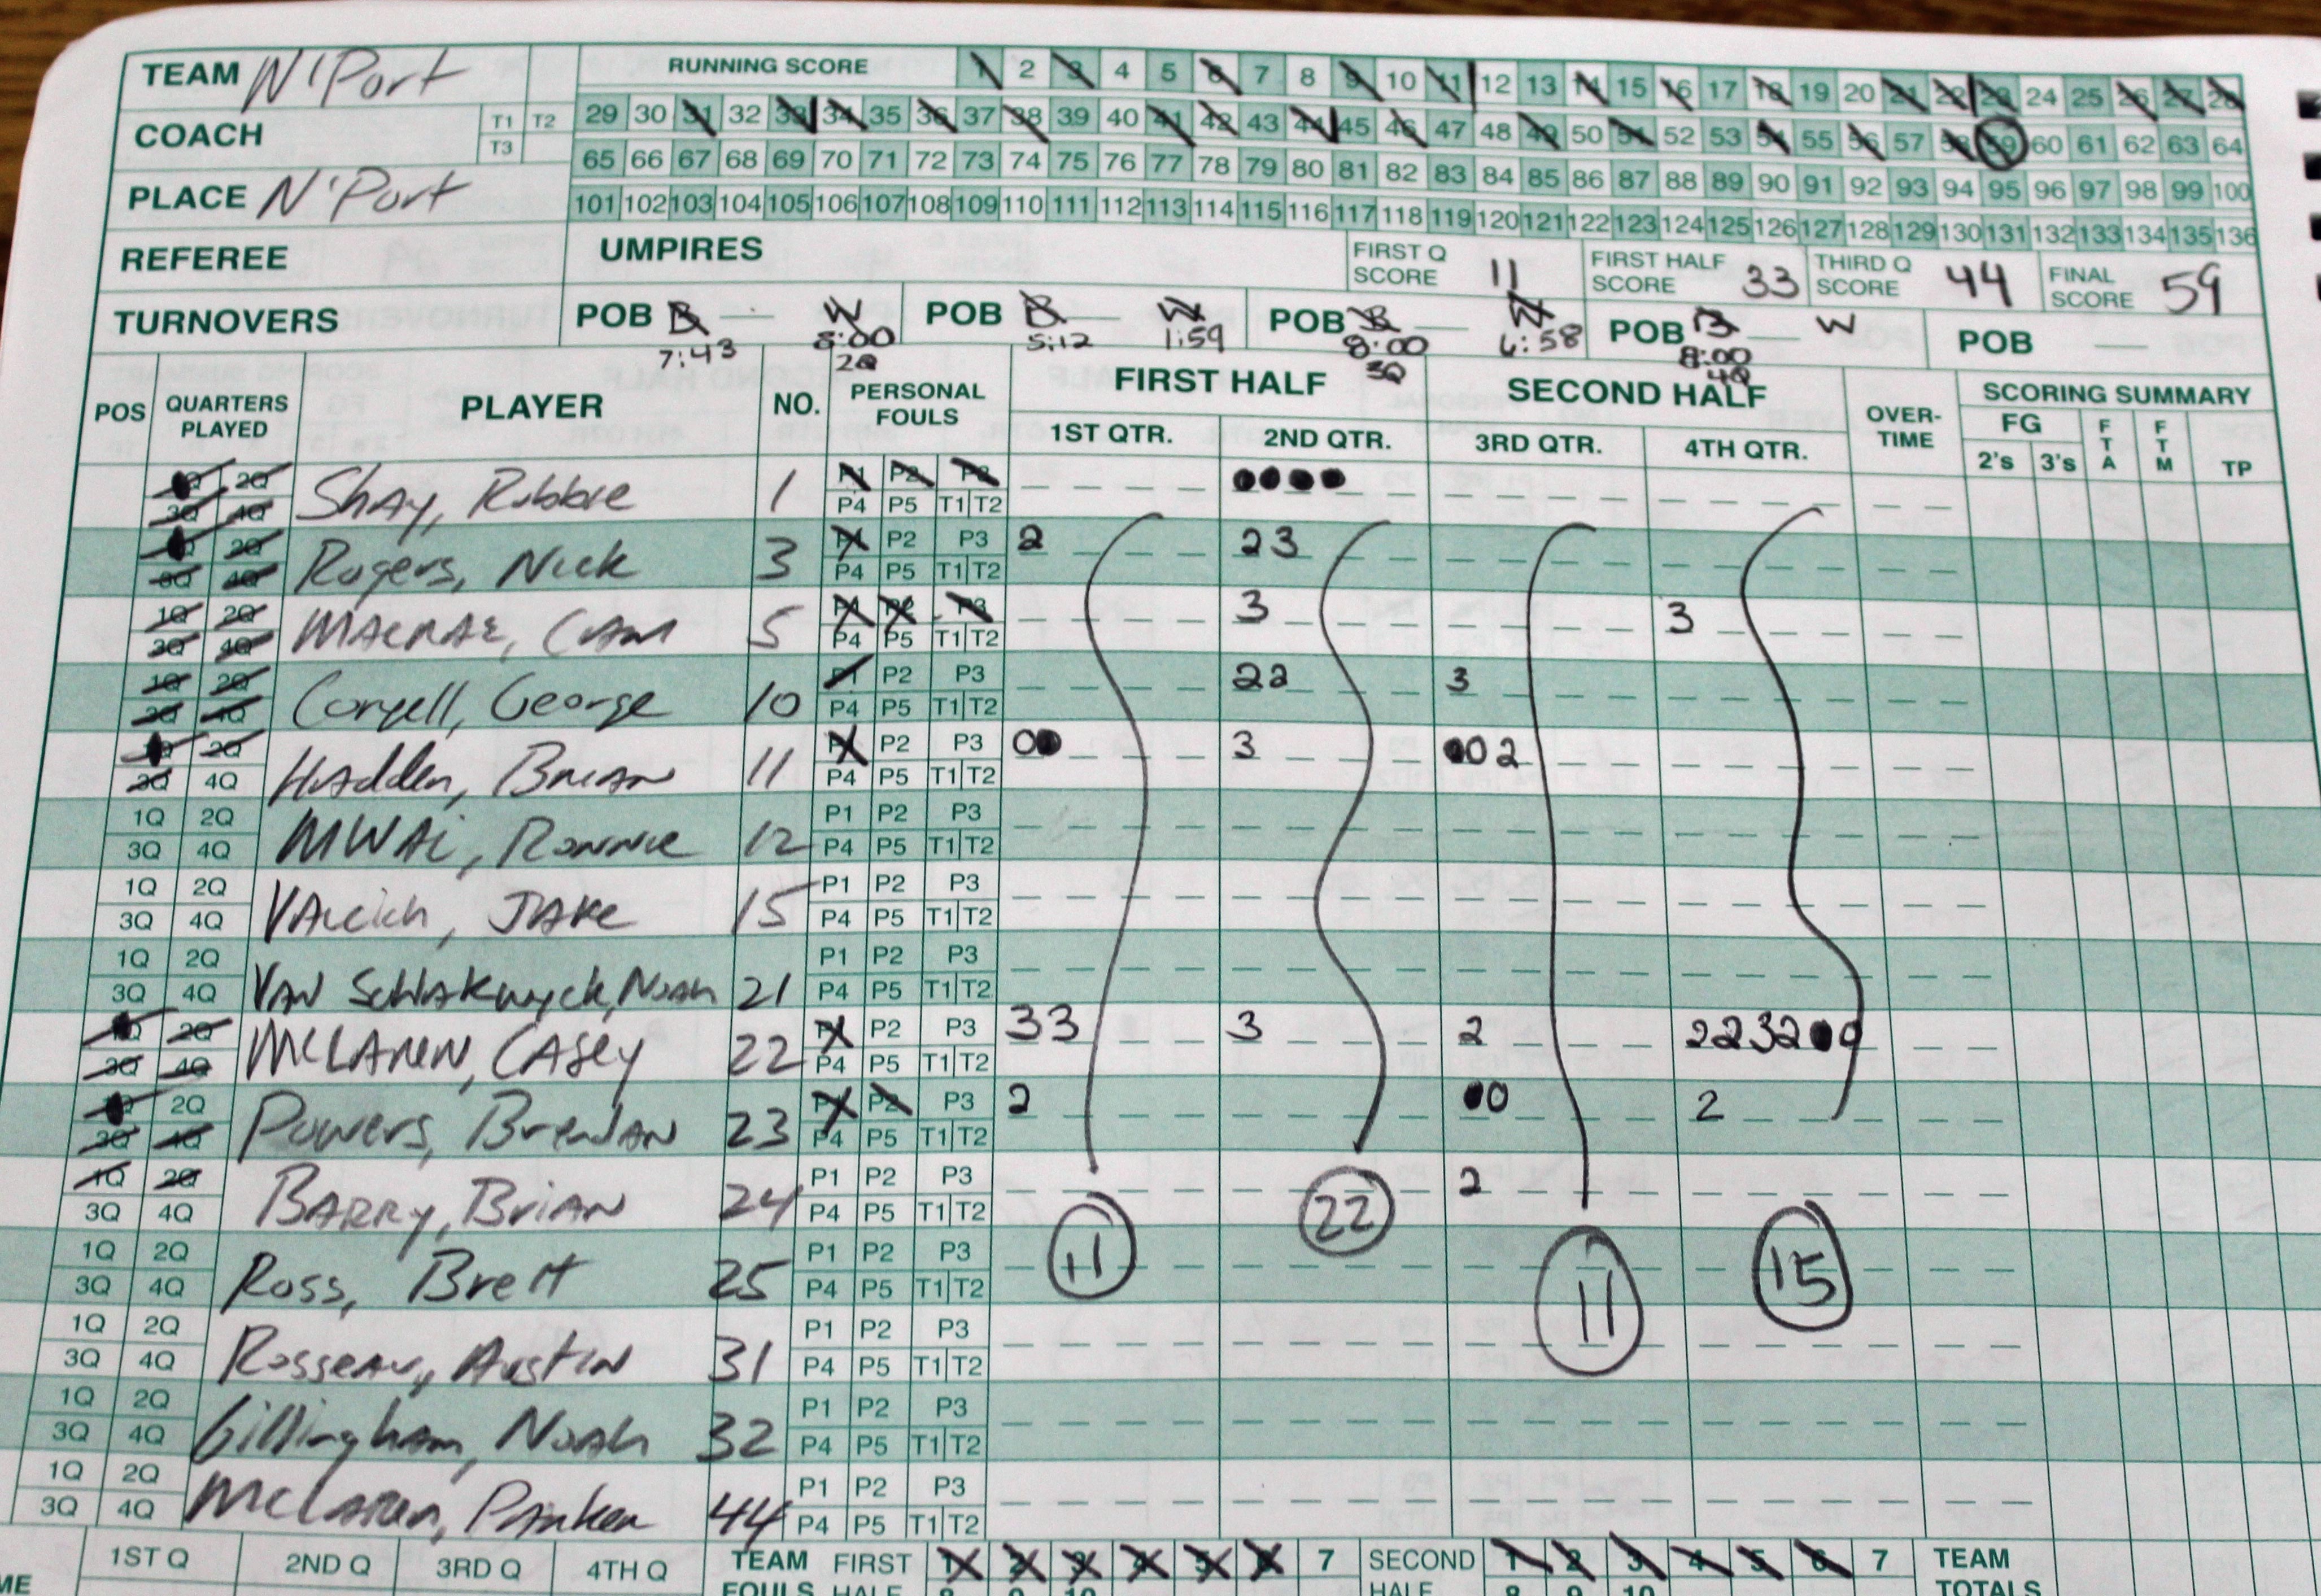 TEAM N'Port RUNNING SCORE 1 2 3 4 5 6 7 8 9 10 11 12 13 14 15 16 17 18 19 20 21 22 23 24 25 26 27 28
COACH T1 T2 T3 29 30 31 32 33 34 35 36 37 38 39 40 41 42 43 44 45 46 47 48 49 50 51 52 53 54 55 56 57 58 59 60 61 62 63 64
65 66 67 68 69 70 71 72 73 74 75 76 77 78 79 80 81 82 83 84 85 86 87 88 89 90 91 92 93 94 95 96 97 98 99 100
PLACE N'Port 101 102 103 104 105 106 107 108 109 110 111 112 113 114 115 116 117 118 119 120 121 122 123 124 125 126 127 128 129 130 131 132 133 134 135 136
REFEREE UMPIRES FIRST Q SCORE 11 FIRST HALF SCORE 33 THIRD Q SCORE 44 FINAL SCORE 59
TURNOVERS POB B W POB B W POB B W POB B W POB
7:43 8:00 2Q 5:12 1:59 8:00 3Q 6:58 8:00 4Q
POS QUARTERS PLAYED PLAYER NO. PERSONAL FOULS FIRST HALF SECOND HALF OVER-TIME SCORING SUMMARY
1ST QTR. 2ND QTR. 3RD QTR. 4TH QTR. FG FTA FTM TP
2's 3's
1Q 2Q Shay, Robbie 1 P1 P2 P3
3Q 4Q P4 P5 T1 T2
1Q 2Q Rogers, Nick 3 P1 P2 P3 2 2 3
3Q 4Q P4 P5 T1 T2
1Q 2Q MACRAE, CAM 5 P1 P2 P3 3 3
3Q 4Q P4 P5 T1 T2
1Q 2Q Coryell, George 10 P1 P2 P3 2 2 3
3Q 4Q P4 P5 T1 T2
1Q 2Q Hadden, Brian 11 P1 P2 P3 0 3 0 2
3Q 4Q P4 P5 T1 T2
1Q 2Q MWAi, Ronnie 12 P1 P2 P3
3Q 4Q P4 P5 T1 T2
1Q 2Q JAKE 15 P1 P2 P3
3Q 4Q P4 P5 T1 T2
1Q 2Q VAN Noah 21 P1 P2 P3
3Q 4Q P4 P5 T1 T2
1Q 2Q MCLAREN, CASEY 22 P1 P2 P3 3 3 3 2 2 2 3 2 0
3Q 4Q P4 P5 T1 T2
1Q 2Q Powers, Brendan 23 P1 P2 P3 2 0 2
3Q 4Q P4 P5 T1 T2
1Q 2Q BARRY, BriAN 24 P1 P2 P3 2
3Q 4Q P4 P5 T1 T2
1Q 2Q Ross, Brett 25 P1 P2 P3 11 22 11 15
3Q 4Q P4 P5 T1 T2
1Q 2Q Rosseau, Austin 31 P1 P2 P3
3Q 4Q P4 P5 T1 T2
1Q 2Q Gillingham, Noah 32 P1 P2 P3
3Q 4Q P4 P5 T1 T2
1Q 2Q McLaren, Parker 44 P1 P2 P3
3Q 4Q P4 P5 T1 T2
1ST Q 2ND Q 3RD Q 4TH Q TEAM FIRST 1 2 3 4 5 6 7 SECOND 1 2 3 4 5 6 7 TEAM
FOULS HALF 8 9 10 HALF 8 9 10 TOTALS